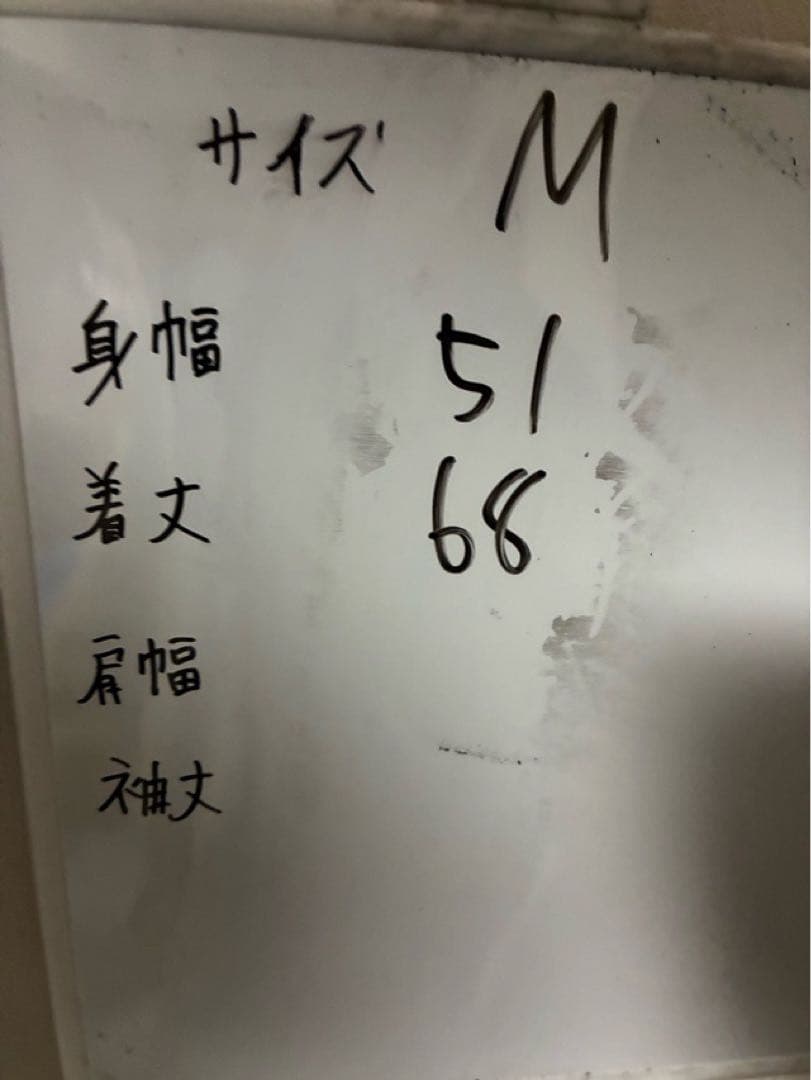 サイズ M
身幅 51
着丈 68
肩幅
袖丈